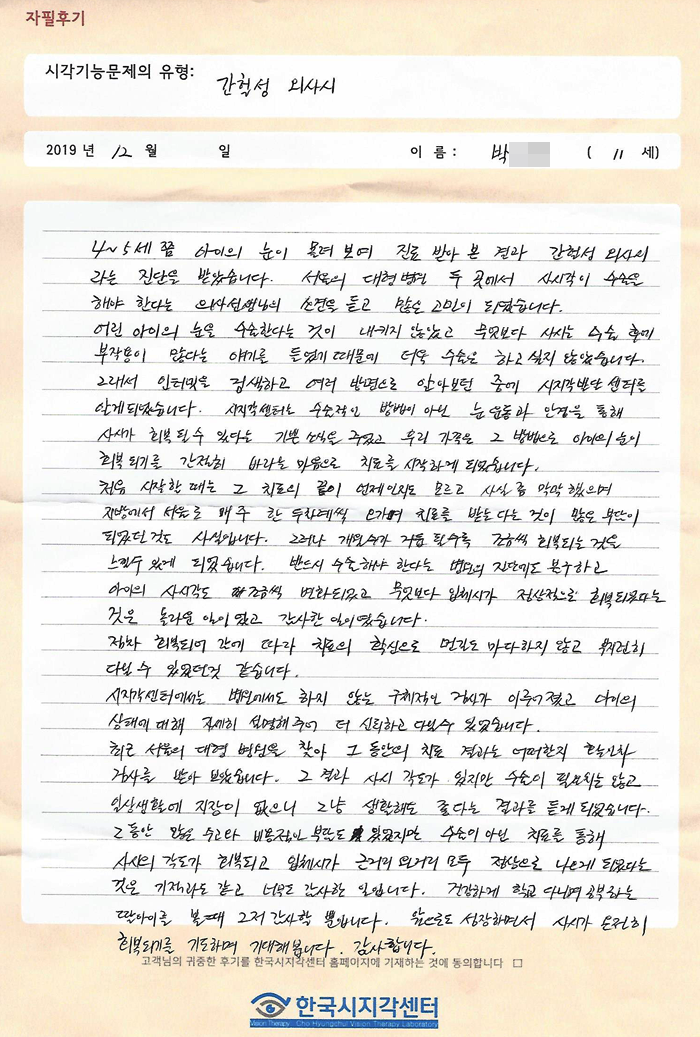 자필후기
시각기능문제의 유형: 간헐성 외사시
2019 년 12 월 일 이 름 : 박 ( 11 세)
4~5세 쯤 아이의 눈이 몰려 보여 진료 받아 본 결과 간헐성 외사시
라는 진단을 받았습니다. 서울의 대형병원 두 곳에서 사시각이 수술을
해야 한다는 의사선생님의 소견을 듣고 많은 고민이 되었습니다.
어린 아이의 눈을 수술한다는 것이 내키지 않았고 무엇보다 사시는 수술 후에
부작용이 많다는 얘기를 들었기 때문에 더욱 수술은 하고 싶지 않았습니다.
그래서 인터넷을 검색하고 여러 방면으로 알아보던 중에 시지각발달 센터를
알게되었습니다. 시지각센터는 수술적인 방법이 아닌 눈 운동과 안경을 통해
사시가 회복 될 수 있다는 기쁜 소식을 주었고 우리 가족은 그 방법으로 아이의 눈이
회복 되기를 간절히 바라는 마음으로 치료를 시작하게 되었습니다.
처음 시작할 때는 그 치료의 끝이 언제인지도 모르고 사실 좀 막막했으며
지방에서 서울로 매주 한 두차례씩 오가며 치료를 받는다는 것이 많은 부담이
되었던것도 사실입니다. 그러나 개월수가 거듭 될수록 조금씩 회복되는 것을
느낄수 있게 되었습니다. 반드시 수술해야 한다는 병원의 진단에도 불구하고
아이의 사시각도 조금씩 변화되었고 무엇보다 입체시가 정상적으로 회복되었다는
것은 놀라운 일이었고 감사한 일이었습니다.
점차 회복되어 감에 따라 치료의 확신으로 먼길도 마다하지 않고 부지런히
다닐 수 있었던것 같습니다.
시지각센터에서는 병원에서도 하지 않는 구체적인 검사가 이루어졌고 아이의
상태에 대해 자세히 설명해 주어 더 신뢰하고 다닐수 있었습니다.
최근 서울의 대형 병원을 찾아 그 동안의 치료 결과는 어떠한지 확인차
검사를 받아 보았습니다. 그 결과 사시 각도가 있지만 수술이 필요치는 않고
일상생활에 지장이 없으니 그냥 생활해도 좋다는 결과를 듣게 되었습니다.
그 동안 많은 수고와 비용적인 부담도 있었지만 수술이 아닌 치료를 통해
사시의 각도가 회복되고 입체시가 근거리 원거리 모두 정상으로 나오게 되었다는
것은 기적라도 같고 너무도 감사한 일입니다. 건강하게 학교 다니며 공부하는
딸아이를 볼때 그저 감사할 뿐입니다. 앞으로도 성장하면서 사시가 온전히
회복되기를 기도하며 기대해봅니다. 감사합니다.
고객님의 귀중한 후기를 한국시지각센터 홈페이지에 기재하는 것에 동의합니다 □
한국시지각센터
Vision Therapy Cho Hyungchul Vision Therapy Laboratory